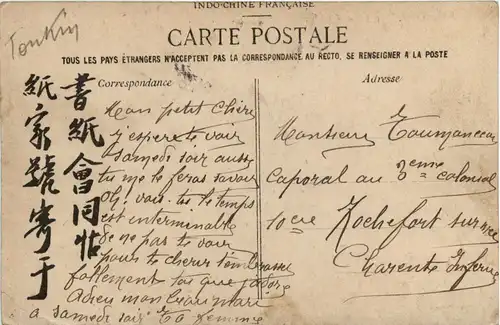 INDO-CHINE FRANÇAISE
Tonkin
CARTE POSTALE
TOUS LES PAYS ÉTRANGERS N'ACCEPTENT PAS LA CORRESPONDANCE AU RECTO, SE RENSEIGNER A LA POSTE
Correspondance
Adresse
書紙會同帖
紙家號寄于
Mon petit Chéri
j'espère te voir
samedi soir aussi
tu me le feras savoir
Oh! vois-tu le temps
est interminable
de ne pas te voir
pour te chérir t'embrasser
follement toi que j'adore
Adieu mon beau mari
a samedi soir Ta femme
Monsieur
Caporal au 3eme colonial
10 cie Rochefort sur mer
Charente Infre